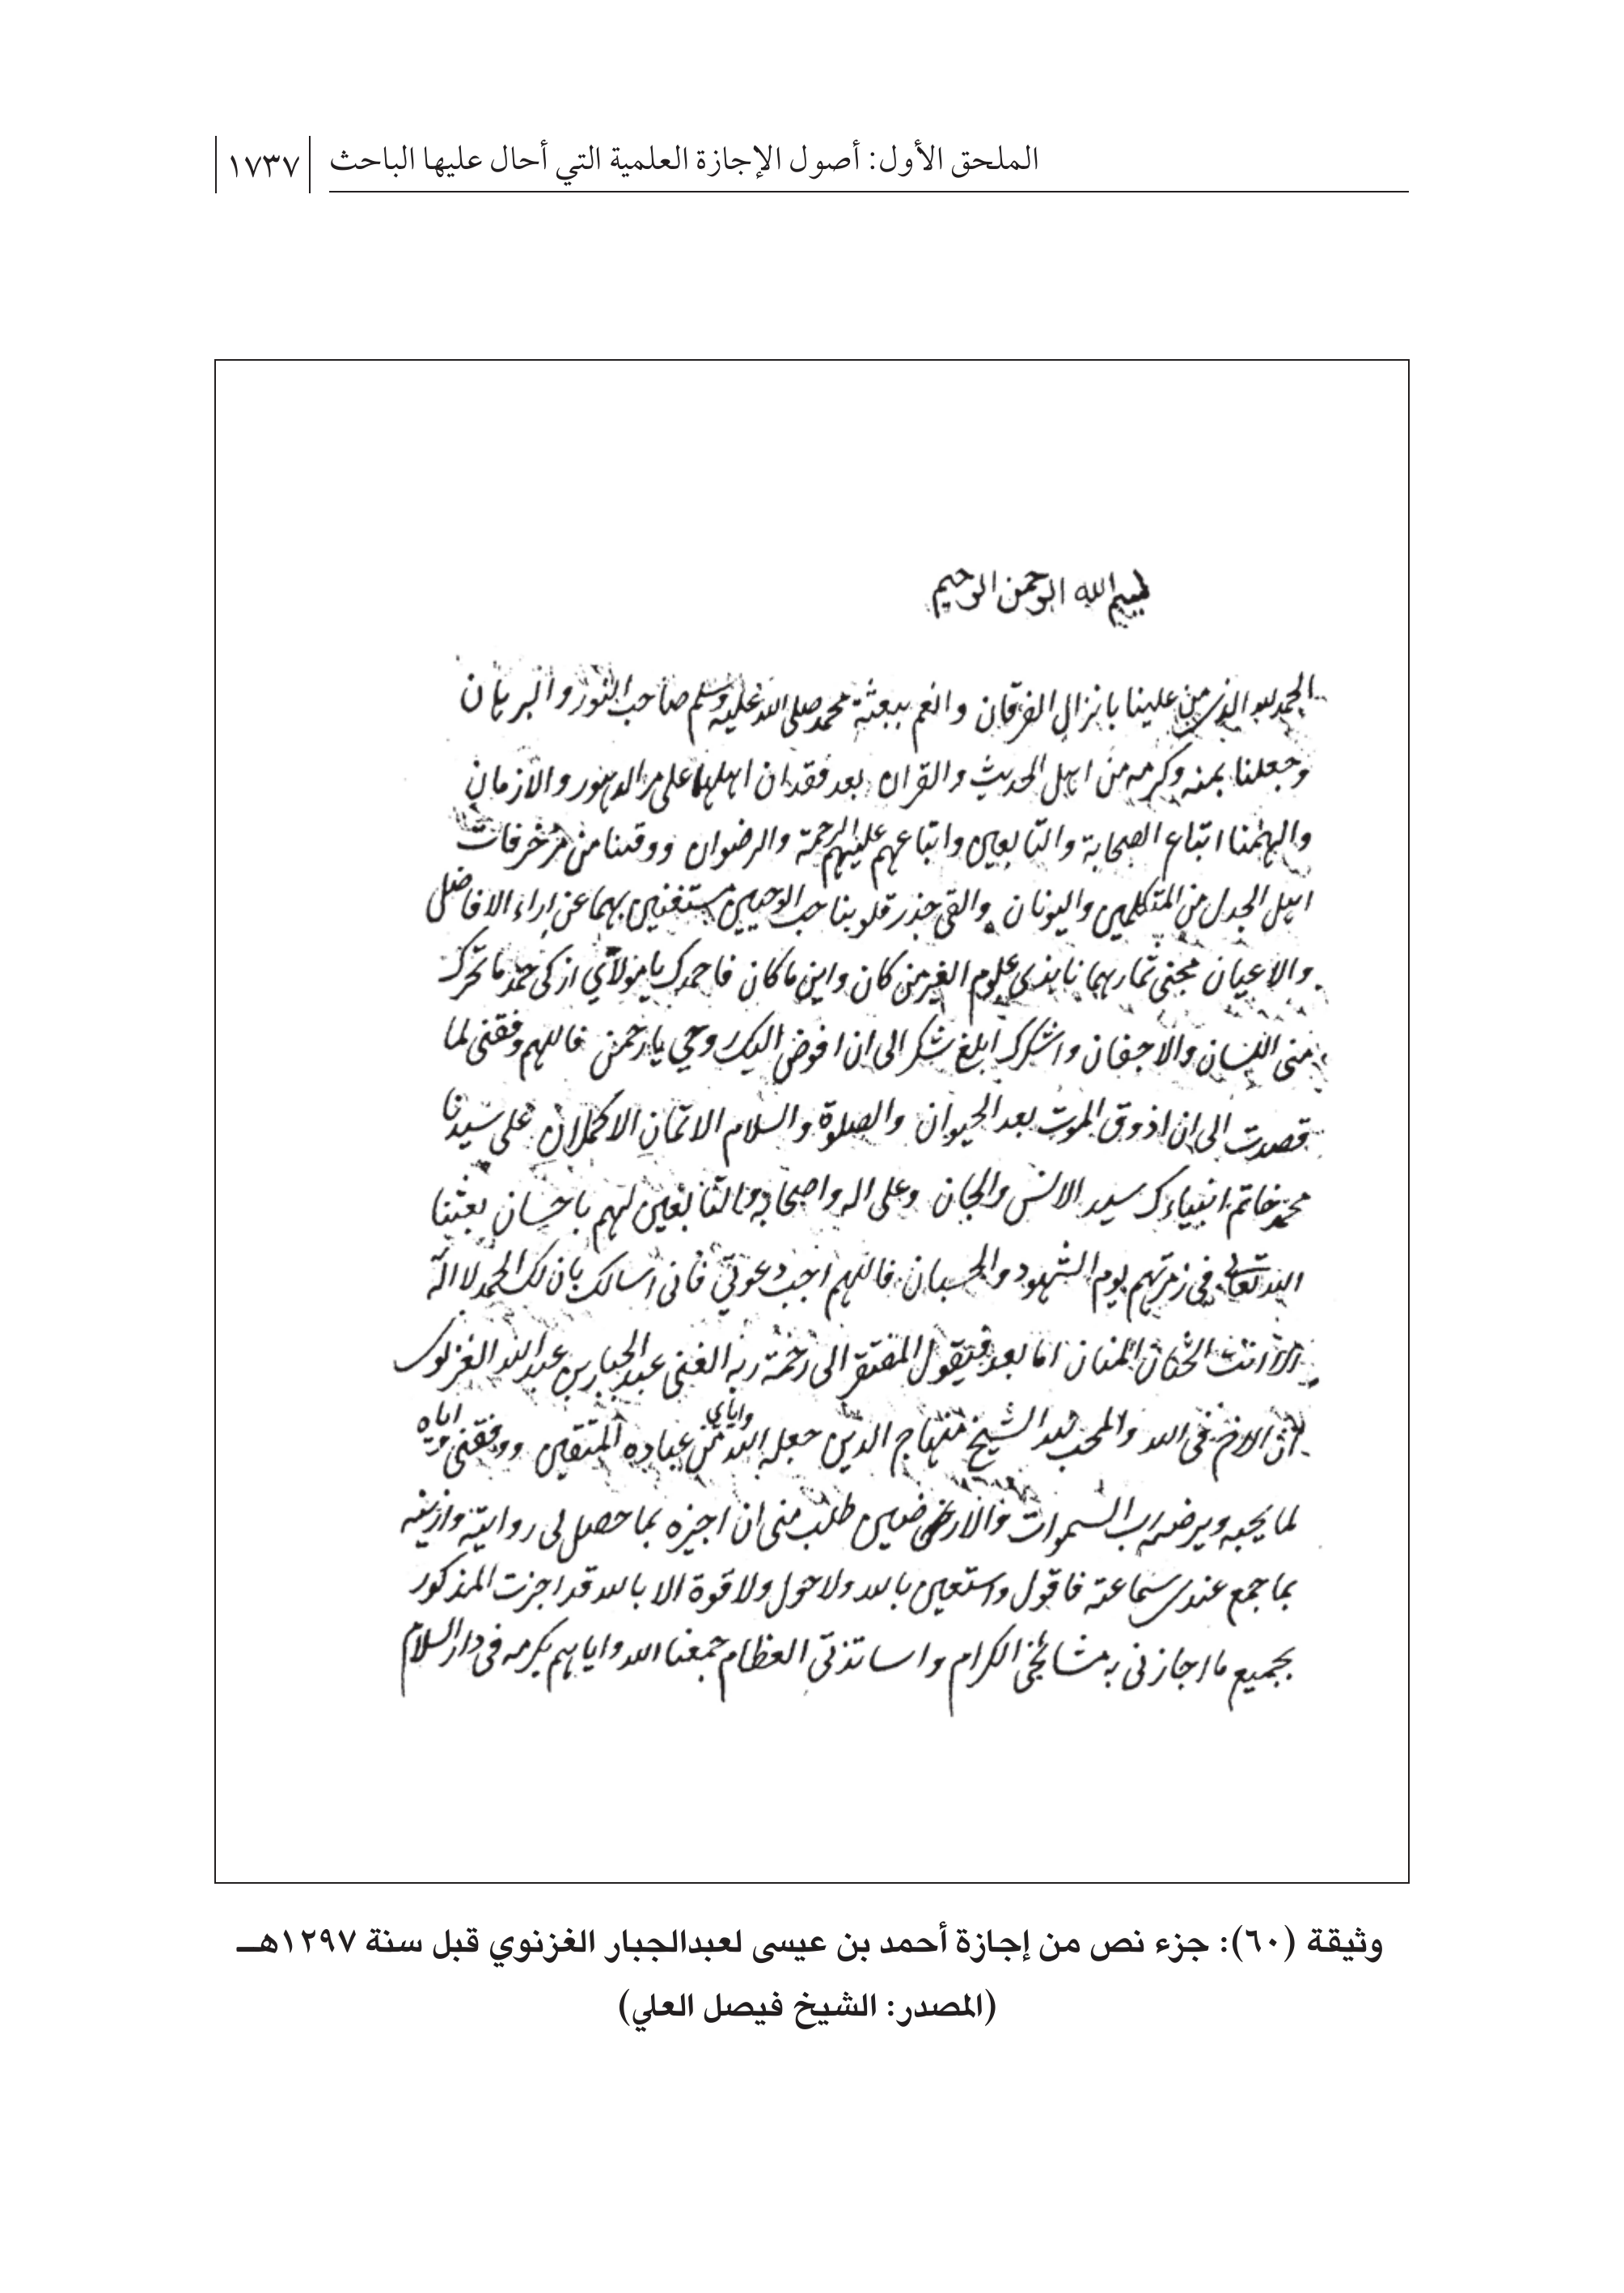 الملحق الأول: أصول الإجازة العلمية التي أحال عليها الباحث ١٧٣٧
بسم الله الرحمن الرحيم
الحمد لله الذي من علينا بانزال الفرقان وانعم ببعثة محمد صلى الله عليه وسلم صاحب النور والبرهان
وجعلنا بمنه وكرمه من اهل الحديث والقران بعد فقدان اهلهما على مر الدهور والازمان
والهمنا اتباع الصحابة والتابعين واتباعهم عليهم الرحمة والرضوان ووقنا من مزخرفات
اهل الجدل من المتكلمين واليونان والقى جذر قلوبنا حب الوحيين مستغنين بهما عن اراء الافاضل
والاعيان مجنى ثمارهما نابذى علوم الغير من كان واين ما كان فاحمدك يا مولاي ازكى حمد ما تحرك
منى اللسان والاجفان واشكرك ابلغ شكر الى ان افوض اليك روحي يا رحمن فاللهم وفقنى لما
قصدت الى ان اذوق الموت بعد الحيوان والصلوة والسلام الاتمان الاكملان على سيدنا
محمد خاتم انبياءك سيد الانس والجان وعلى اله واصحابه والتابعين لهم باحسان بعثنا
الله تعالى فى زمرتهم يوم الشهود والحسبان فاللهم اجب دعوتي فانى اسالك بان لك الحمد لا اله
الا انت الحنان المنان اما بعد فيقول المفتقر الى رحمة ربه الغنى عبد الجبار بن عبد الله الغزنوى
ان الاخ فى الله والمحب لله الشيخ منهاج الدين جعله الله واياي من عباده المتقين ووفقنى واياه
لما يحبه ويرضه رب السموات والارضين طلب منى ان اجيزه بما حصل لى روايته وازينه
بما جمع عندى سماعته فاقول واستعين بالله ولا حول ولا قوة الا بالله قد اجزت المذكور
بجميع ما اجازنى به مشائخي الكرام واساتذتي العظام جمعنا الله واياهم بكرمه فى دار السلام
وثيقة (٦٠): جزء نص من إجازة أحمد بن عيسى لعبدالجبار الغزنوي قبل سنة ١٢٩٧هـ
(المصدر: الشيخ فيصل العلي)